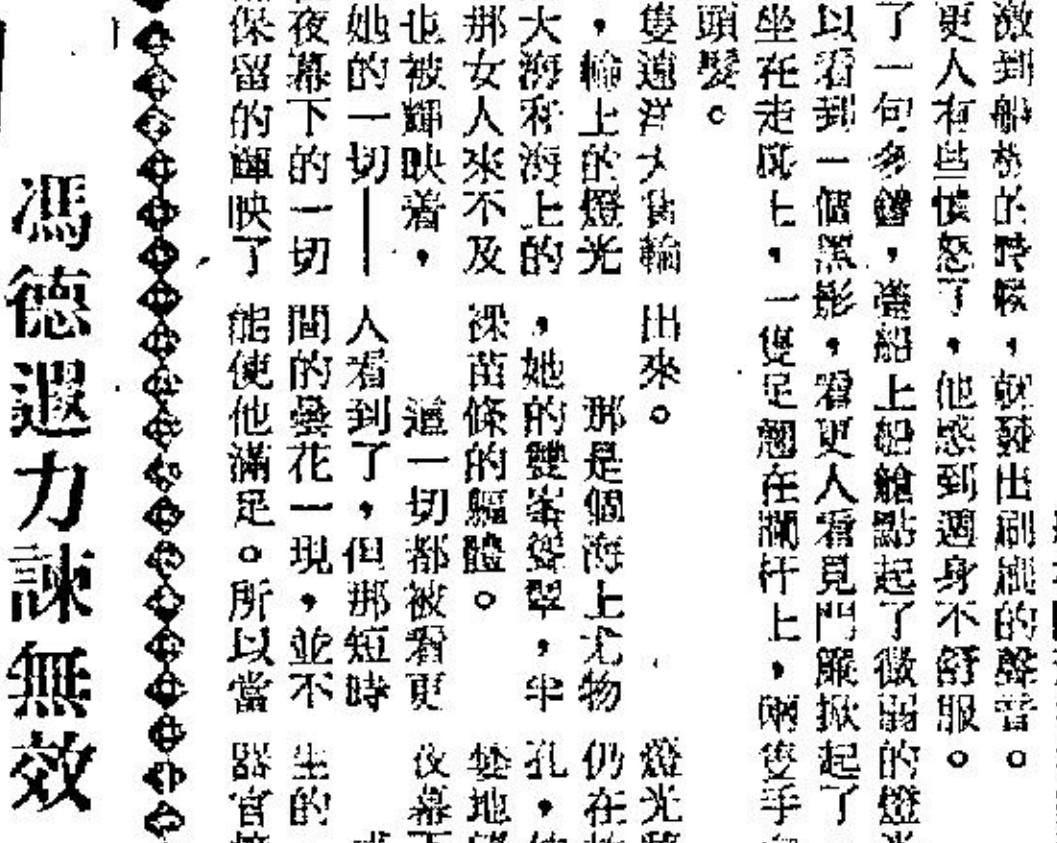 激到船𦨭的時候，就發出刷刷的聲音。
更人有些憤怒了，他感到遍身不舒服。
了一句多謝，艙船上船艙點起了微弱的燈光
以看到一個黑影，看更人看見門簾掀起了，
坐在走廊上，一隻足翹在欄杆上，兩隻手
頭髮。
隻遠洋大貨輪
，輪上的燈光
大海和海上的
那女人來不及
也被輝映着，
她的一切——
夜幕下的一切
保留的輝映了
出來。
那是個海上尤物
，她的雙峯聳翠，半
裸苗條的軀體。
這一切都被看更
人看到了，但那短時
間的曇花一現，並不
能使他滿足。所以當
燈光
仍在
孔，
地
夜幕下
生的
器官
馮德遐力諫無效